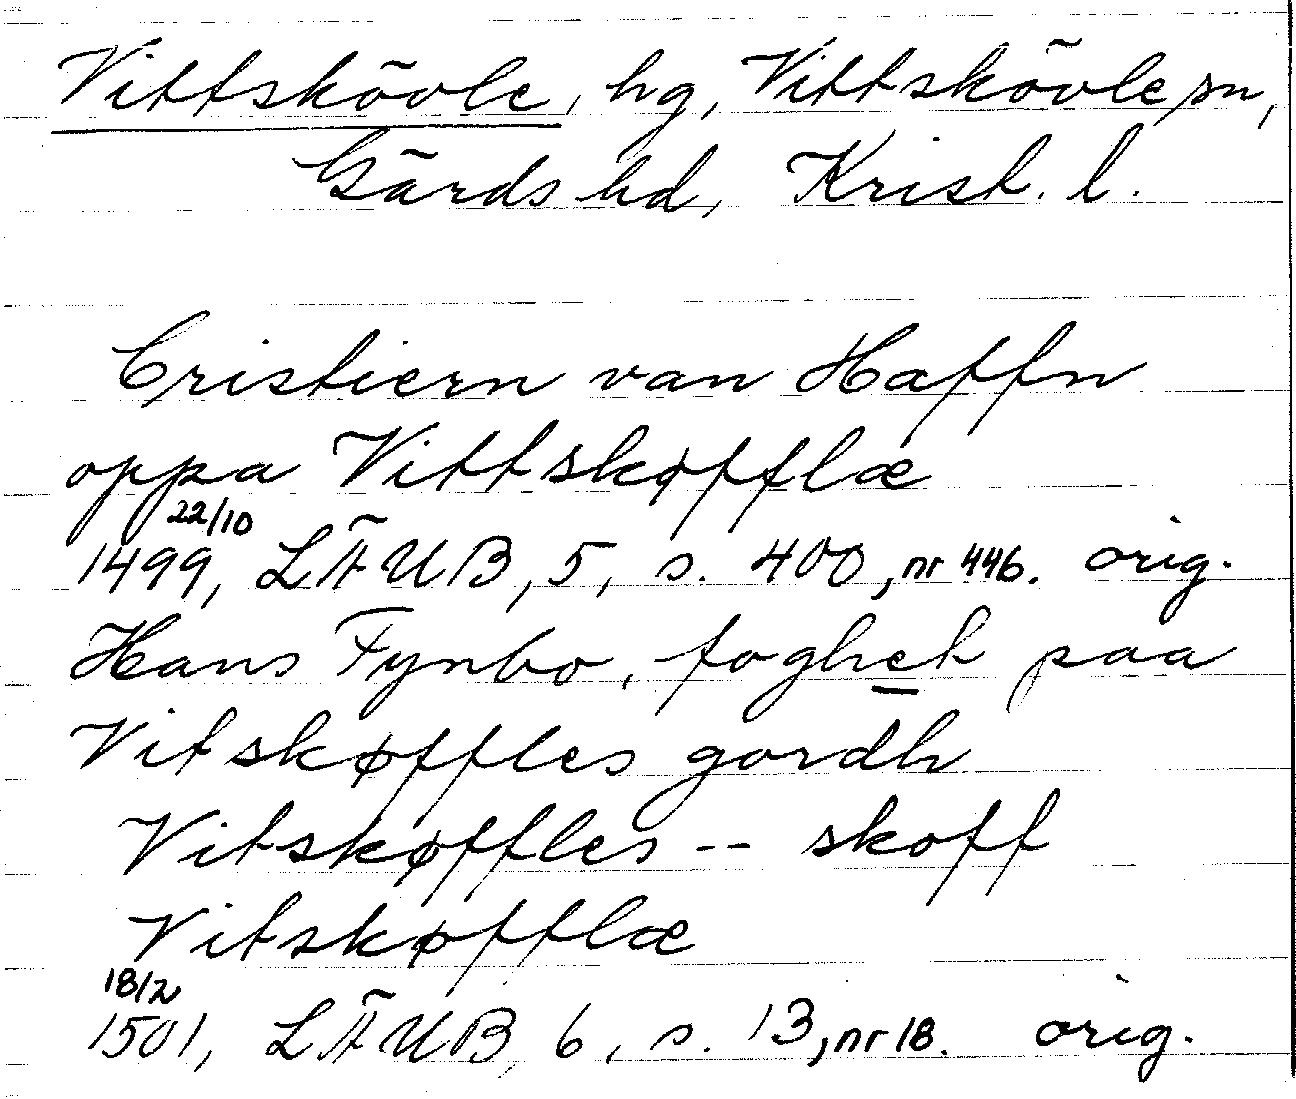 Vittskövle, hg, Vittskövle sn,
Gärds hd, Krist. l.
Cristiern van Haffn
oppa Vittskøfflæ
22/10
1499, LÄUB, 5, s. 400, nr 446. orig.
Hans Fynbo, foghet paa
Vitskøffles gordh
Vitskøffles -- skoff
Vitskøfflæ
18/2
1501, LÄUB, 6, s. 13, nr 18. orig.